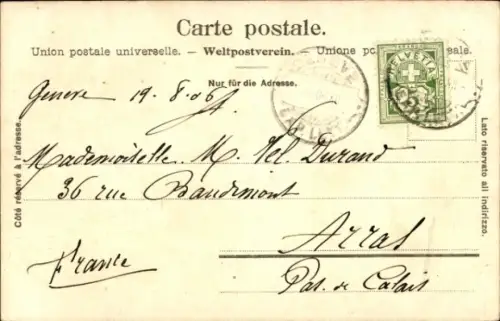 Carte postale.
Union postale universelle. – Weltpostverein. – Unione
Nur für die Adresse.
Geneve 19. 8. 06
HELVETIA
Mademoiselle M. Vel. Durand
36 rue Baudimont
Arras
France
Pas. de Calais
Côté réservé à l'adresse.
Lato riservato all indirizzo.